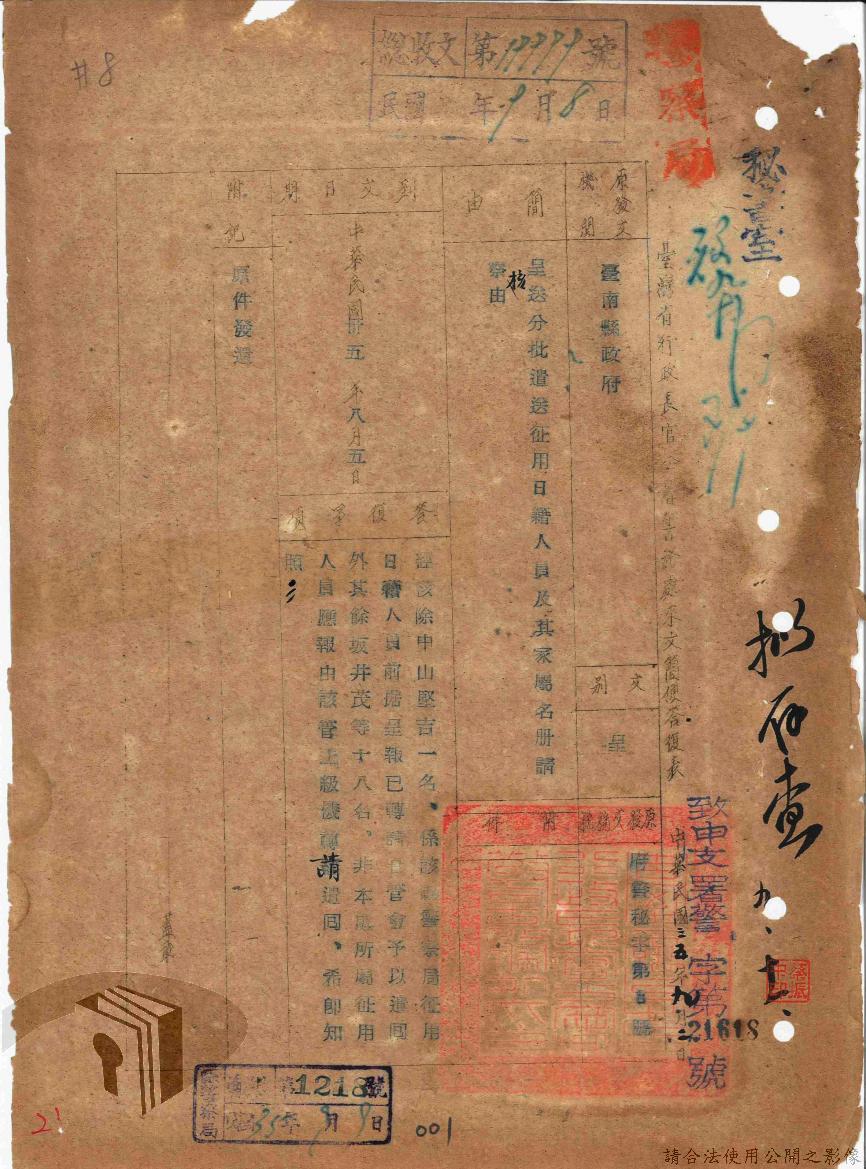 #8
總收文 第 號
民國 年9月8日
警察局
秘書室
臺灣省行政長官公署警務處來文簡便答復表
中華民國三五年九月二日
致申支署警 字第21618號
原發文機關
臺南縣政府
文別
呈
原發文號
府警秘字第 號
附件
簡由
呈送分批遣送征用日籍人員及其家屬名册請核察由
到文日期
中華民國卅五年八月五日
答復事項
經核除中山堅吉一名、係該縣警察局征用日籍人員前據呈報已轉請日管會予以遣囘外其餘坂井茂等十八名、非本處所屬征用人員應報由該管上級機關轉請遣囘、希即知照
附記
原件發還
擬存查 九、十二、
縣警察局
第1218號
35年9月9日
21
001
請合法使用公開之影像